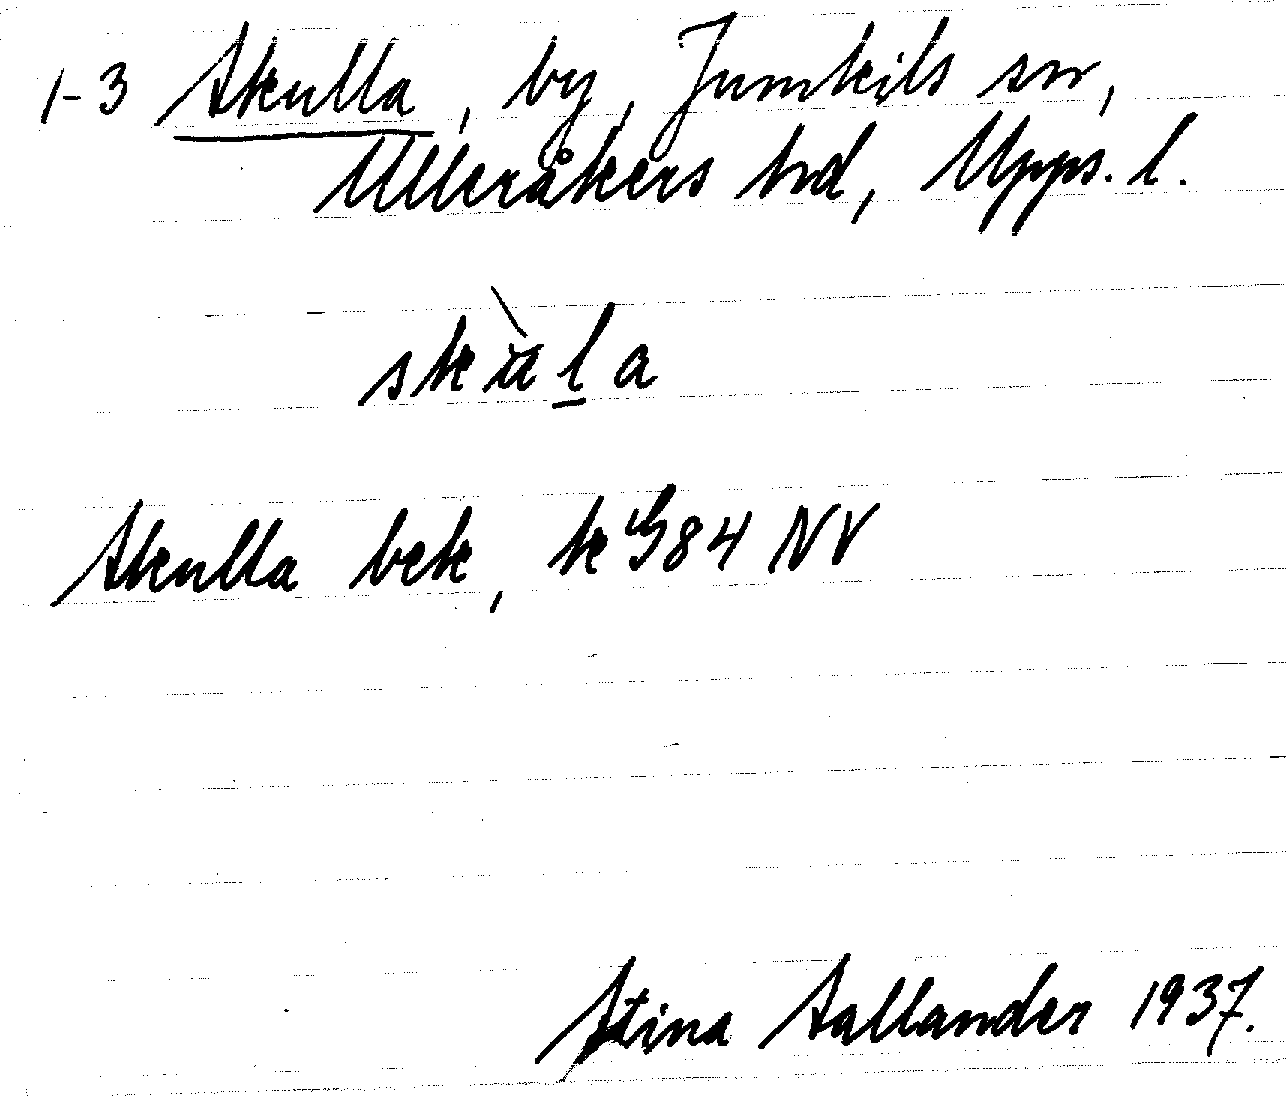 1-3 Skulla, by, Jumkils sn,
Ulleråkers hd, Upps. l.
skùl̲a
Skulla bek, k G84 NV
Stina Sallander 1937.